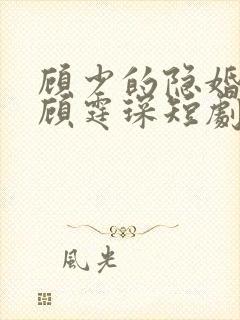 顾少的隐婚
顾霆琛短劇
風光